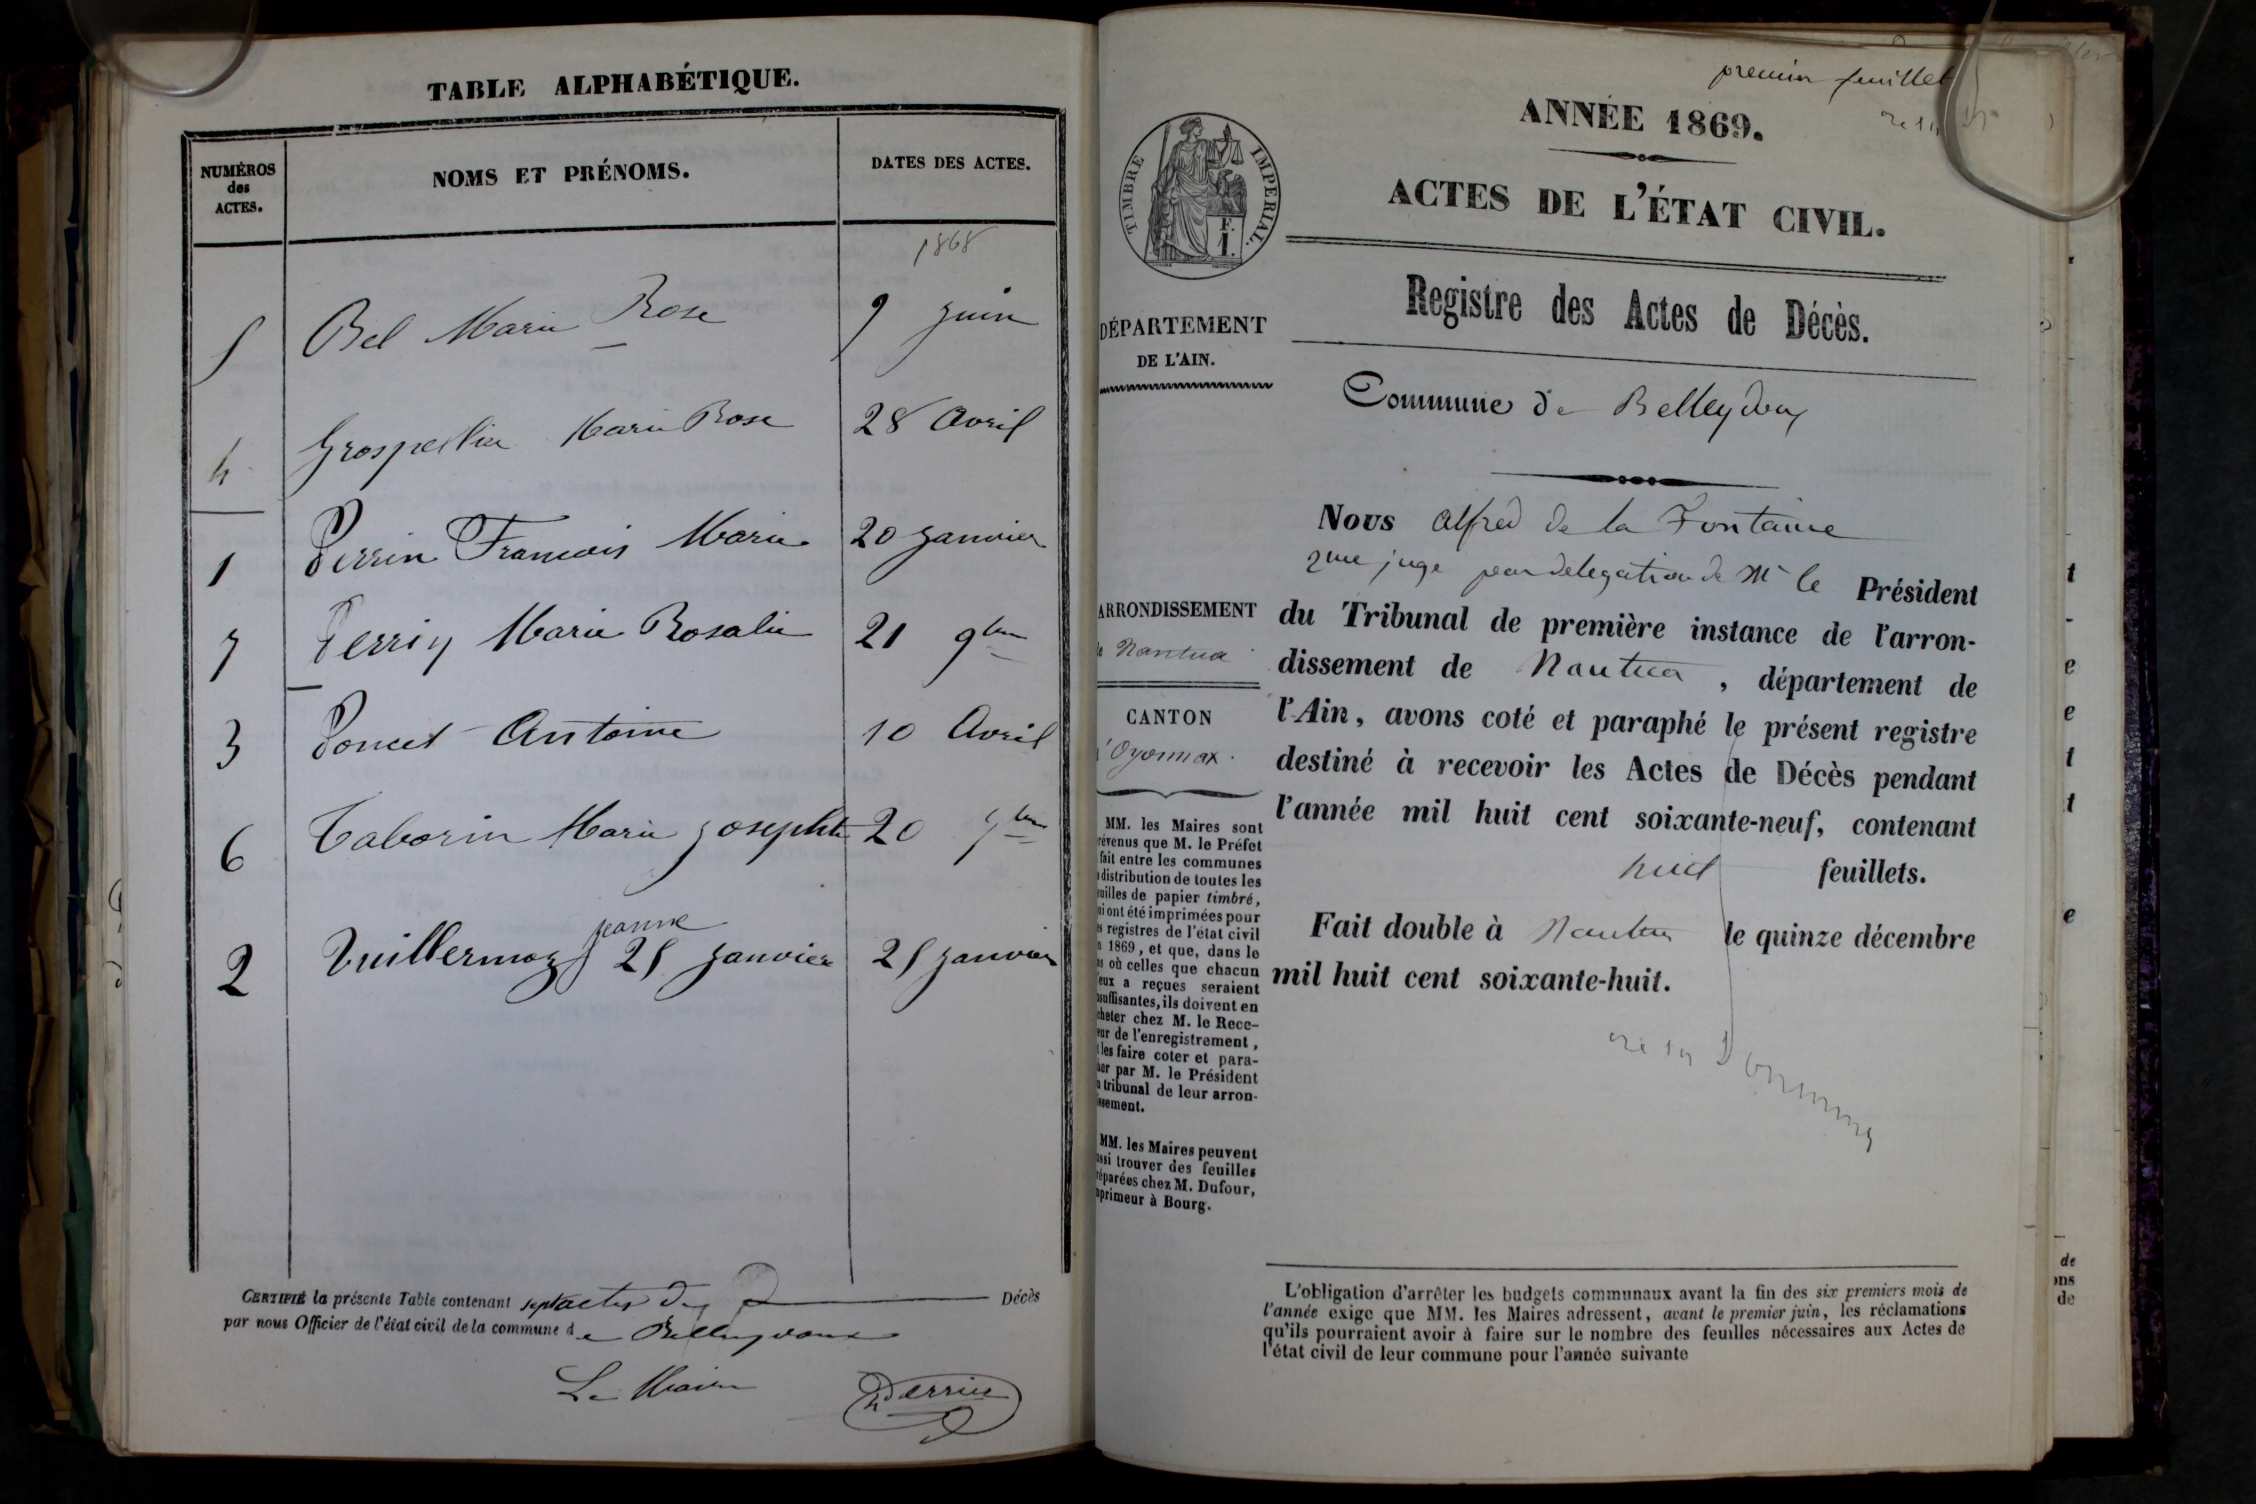 TABLE ALPHABÉTIQUE.
NUMÉROS des ACTES.
NOMS ET PRÉNOMS.
DATES DES ACTES.
1868
5 Bel Marie Rose 9 juin
4 Grospellier Marie Rose 28 Avril
1 Perrin François Marie 20 janvier
7 Perrin Marie Rosalie 21 9bre
3 Poncet Antoine 10 Avril
6 Taborin Marie Josephte 20
jeanne
2 Vuillermoz 25 janvier 25 janvier
CERTIFIÉ la présente Table contenant sept actes de Décès
par nous Officier de l'état civil de la commune de Belleydoux
Le Maire
Perrin
premier feuillet
ANNÉE 1869.
ACTES DE L'ÉTAT CIVIL.
TIMBRE IMPERIAL.
F.
1.
Registre des Actes de Décès.
DÉPARTEMENT
DE L'AIN.
Commune de Belleydoux
Nous Alfred de la Fontaine
juge par delegation de Mr le Président
ARRONDISSEMENT
de Nantua
CANTON
d'Oyonnax.
du Tribunal de première instance de l'arron-
dissement de Nantua, département de
l'Ain, avons coté et paraphé le présent registre
destiné à recevoir les Actes de Décès pendant
l'année mil huit cent soixante-neuf, contenant
huit feuillets.
Fait double à Nantua le quinze décembre
mil huit cent soixante-huit.
MM. les Maires sont
prévenus que M. le Préfet
fait entre les communes
distribution de toutes les
feuilles de papier timbré,
qui ont été imprimées pour
les registres de l'état civil
1869, et que, dans le
cas où celles que chacun
d'eux a reçues seraient
insuffisantes, ils doivent en
acheter chez M. le Rece-
veur de l'enregistrement,
les faire coter et para-
pher par M. le Président
du tribunal de leur arron-
dissement.
MM. les Maires peuvent
aussi trouver des feuilles
préparées chez M. Dufour,
imprimeur à Bourg.
L'obligation d'arrêter les budgets communaux avant la fin des six premiers mois de
l'année exige que MM. les Maires adressent, avant le premier juin, les réclamations
qu'ils pourraient avoir à faire sur le nombre des feuilles nécessaires aux Actes de
l'état civil de leur commune pour l'année suivante